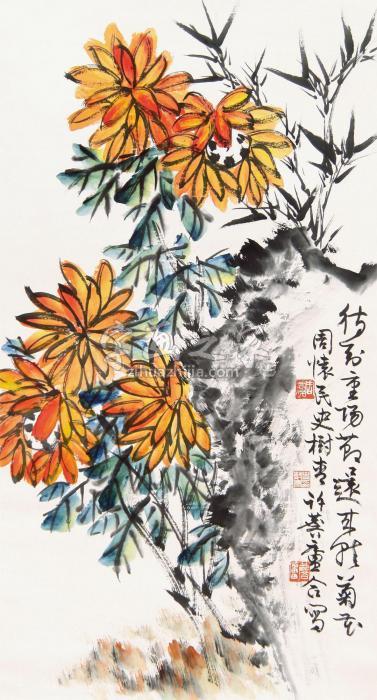 待到重阳节还来就菊花
周怀民史树青许麐庐合写
zihuazhijia.com